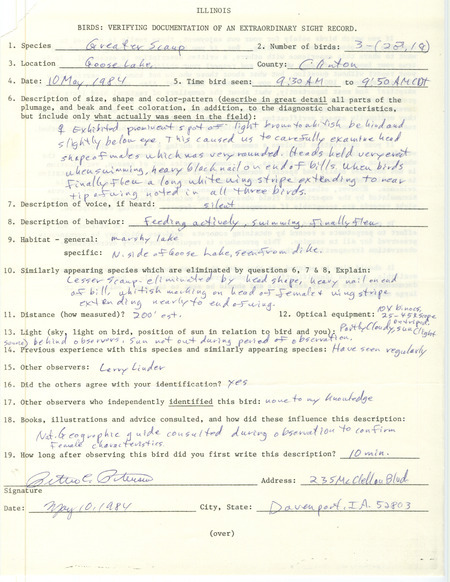 ILLINOIS
BIRDS: VERIFYING DOCUMENTATION OF AN EXTRAORDINARY SIGHT RECORD.
1. Species Greater Scaup 2. Number of birds: 3-(2♂,1♀)
3. Location Goose Lake County: Clinton
4. Date: 10 May, 1984 5. Time bird seen: 9:30 AM to 9:50 AM CDT
6. Description of size, shape and color-pattern (describe in great detail all parts of the
plumage, and beak and feet coloration, in addition, to the diagnostic characteristics,
but include only what actually was seen in the field):
♀ Exhibited prominent spot of light brown to whitish behind and
slightly below eye. This caused us to carefully examine head
shape of males which was very rounded. Heads held very erect
when swimming, heavy black nail on end of bills. When birds
finally flew a long white wing stripe extending to near
tip of wing noted in all three birds.
7. Description of voice, if heard: silent
8. Description of behavior: Feeding actively, swimming, finally flew
9. Habitat - general: marshy lake
specific: N. side of Goose Lake, seen from dike.
10. Similarly appearing species which are eliminated by questions 6, 7 & 8, Explain:
Lesser Scaup eliminated by head shape, heavy nail on end
of bill, whitish marking on head of female & wing stripe
extending nearly to end of wing.
11. Distance (how measured)? 200' est. 12. Optical equipment: 10X binocs.
25-45X scope
13. Light (sky, light on bird, position of sun in relation to bird and you): Partly Cloudy, sun (light
source) behind observers. Sun not out during period of observation.
14. Previous experience with this species and similarly appearing species: Have seen regularly
15. Other observers: Larry Linder
16. Did the others agree with your identification? yes
17. Other observers who independently identified this bird: none to my knowledge
18. Books, illustrations and advice consulted, and how did these influence this description:
Nat. Geographic guide consulted during observation to confirm
Female characteristics.
19. How long after observing this bird did you first write this description? 10 min.
Peter C. Petersen Address: 235 McClellan Blvd.
Signature
Date: May 10, 1984 City, State: Davenport, IA. 52803
(over)